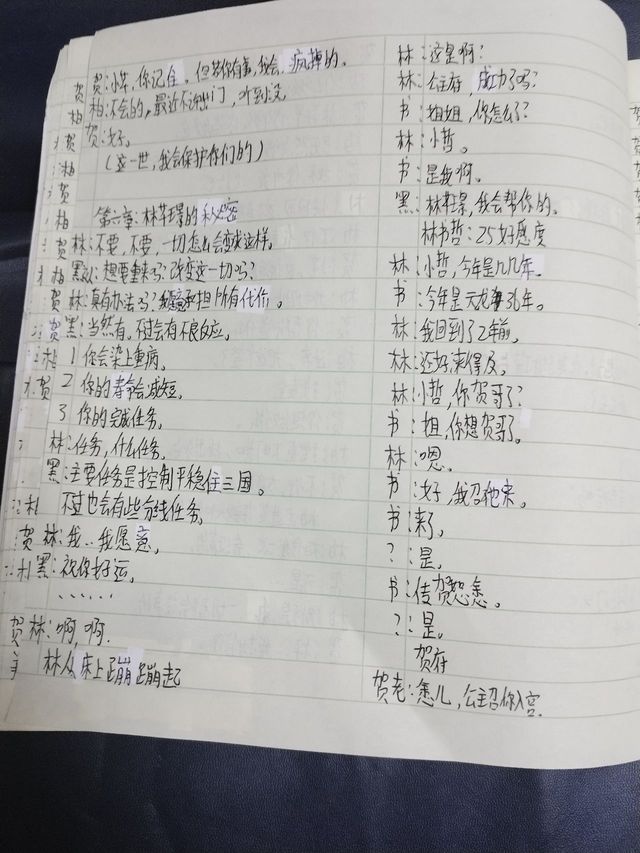 贺:小苹,你记住。但若你有事,我会疯掉的。
柏:不会的,最近不许出门,听到没
贺:好。
(这一世,我会保护你们的)
第六章:林苹璟的秘密
林:不要,不要,一切怎么会变成这样。
黑:想要重来吗?改变这一切吗?
林:真有办法吗?我愿承担所有代价。
黑:当然有,不过会有不良反应。
1 你会染上重病。
2 你的寿命会减短。
3 你的完成任务。
林:任务,什么任务。
黑:主要任务是控制平稳住三国。
不过也会有些分线任务。
林:我..我愿意。
黑:祝你好运。
......
林:啊,啊.
林从床上蹦蹦起
林:这是啊?
林:公主府,成功了吗?
书:姐姐,你怎么了?
林:小哲。
书:是我啊。
黑:林苹璟,我会帮你的。
林书哲:25好感度
林:小哲,今年是几几年。
书:今年是天龙36年。
林:我回到了2年前。
林:还好来得及。
林:小哲,你贺哥了?
书:姐,你想贺哥了。
林:嗯。
书:好,我召他来。
书:来了。
?:是。
书:传贺恕悉。
?:是。
贺府
贺老:悉儿,公主召你入宫.